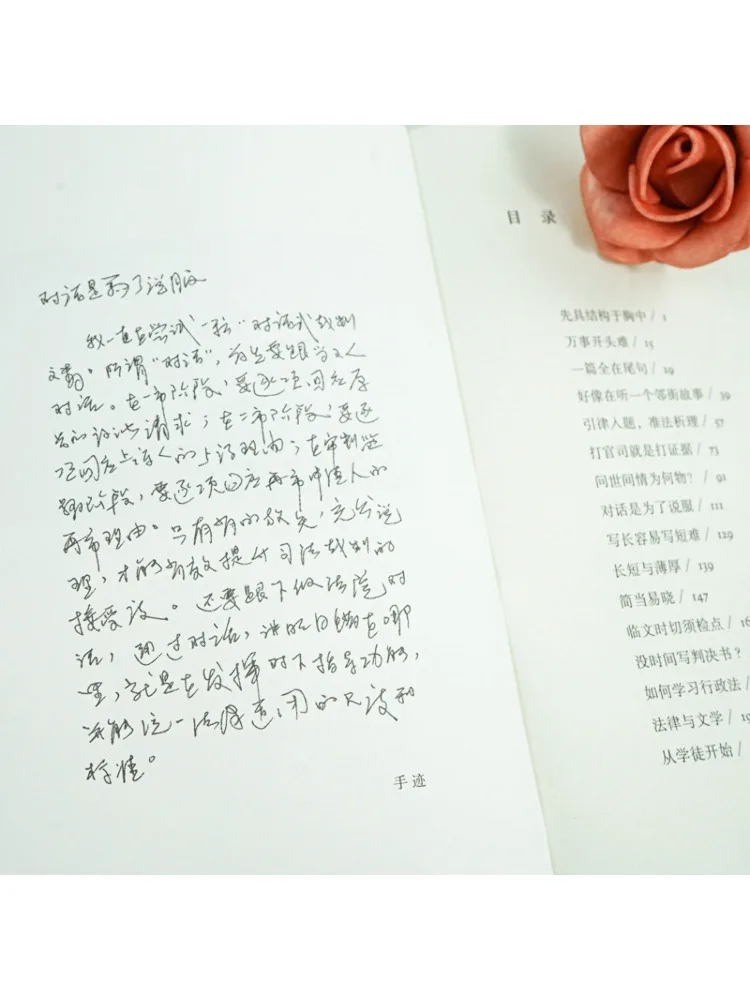 对话是为了说服
我一直在尝试一种"对话式裁判
文书。所谓"对话",首先要跟当事人
对话。在一审阶段,要逐项回应原
告的诉讼请求;在二审阶段,要逐
项回应上诉人的上诉理由;在审判监
督阶段,要逐项回应再审申请人的
再审理由。只有有的放矢,充分说
理,才能有效提升司法裁判的
接受度。还要跟下级法院对
话,通过对话,讲明白错在哪
里,就是在发挥对下指导功能,
并能统一法律适用的尺度和
标准。
手迹
目录
先具结构于胸中 / 1
万事开头难 / 15
一篇全在尾句 / 29
好像在听一个邻街故事 / 39
引律入题,准法析理 / 57
打官司就是打证据 / 73
问世间情为何物? / 91
对话是为了说服 / 111
写长容易写短难 / 129
长短与薄厚 / 139
简当易晓 / 147
临文时切须检点 /
没时间写判决书?
如何学习行政法
法律与文学 /
从学徒开始 /